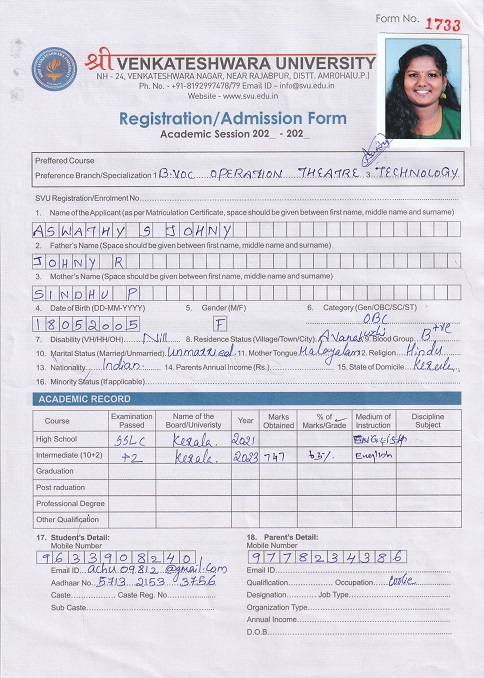 Form No. 1733
श्री VENKATESHWARA UNIVERSITY
NH - 24, VENKATESHWARA NAGAR, NEAR RAJABPUR, DISTT. AMROHA[U.P.]
Ph. No. - +91-8192997478/79 Email ID – info@svu.edu.in
Website - www.svu.edu.in
Registration/Admission Form
Academic Session 202_ - 202_
Preffered Course
Preference Branch/Specialization 1 B.VOC OPERATION THEATRE 3. TECHNOLOGY
SVU Registration/Enrolment No.
1. Name of the Applicant (as per Matriculation Certificate, space should be given between first name, middle name and surname)
ASWATHY S JOHNY
2. Father's Name (Space should be given between first name, middle name and surname)
JOHNY R
3. Mother's Name (Space should be given between first name, middle name and surname)
SINDHU P
4. Date of Birth (DD-MM-YYYY) 5. Gender (M/F) 6. Category (Gen/OBC/SC/ST)
18052005 F OBC
7. Disability (VH/HH/OH) Nill 8. Residence Status (Village/Town/City) 9. Blood Group B+ve
10. Marital Status (Married/Unmarried) Unmarried 11. Mother Tongue Malayalam 12. Religion Hindu
13. Nationality Indian 14. Parents Annual Income (Rs.) 15. State of Domicile Kerala
16. Minority Status (If applicable)
ACADEMIC RECORD
Course Examination Passed Name of the Board/Univeristy Year Marks Obtained % of Marks/Grade Medium of Instruction Discipline Subject
High School SSLC Kerala. 2021 ENGLISH
Intermediate (10+2) +2 Kerala. 2023 747 65% English
Graduation
Post raduation
Professional Degree
Other Qualification
17. Student's Detail: 18. Parent's Detail:
Mobile Number Mobile Number
9633908240 9778234386
Email ID achu09812@gmail.com Email ID
Aadhaar No. 5713 2153 3756 Qualification Occupation Coolie
Caste Caste Reg. No. Designation Job Type
Sub Caste Organization Type
Annual Income
D.O.B.